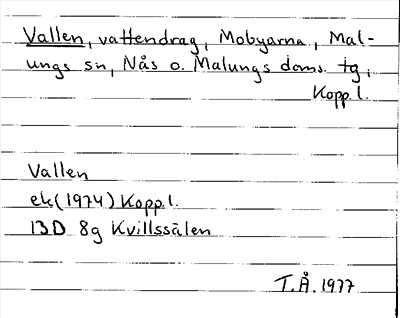 Vallen, vattendrag, Mobyarna, Mal-
ungs sn, Nås o. Malungs doms. tg,
Koppl.
Vallen
ek(1974) Koppl.
13D 8g Kvillssälen
T.Å. 1977